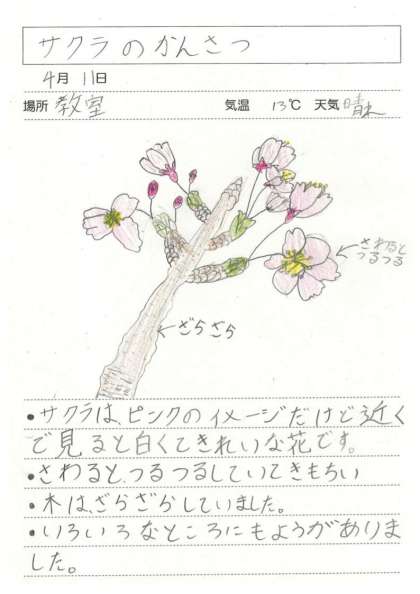 サクラのかんさつ
4月 11日
場所 教室 気温 13℃ 天気 晴れ
さわると
つるつる
ざらざら
•サクラは、ピンクのイメージだけど近く
で見ると白くてきれいな花です。
•さわると、つるつるしていてきもちい
•木は、ざらざらしていました。
•いろいろなところにもようがありま
した。